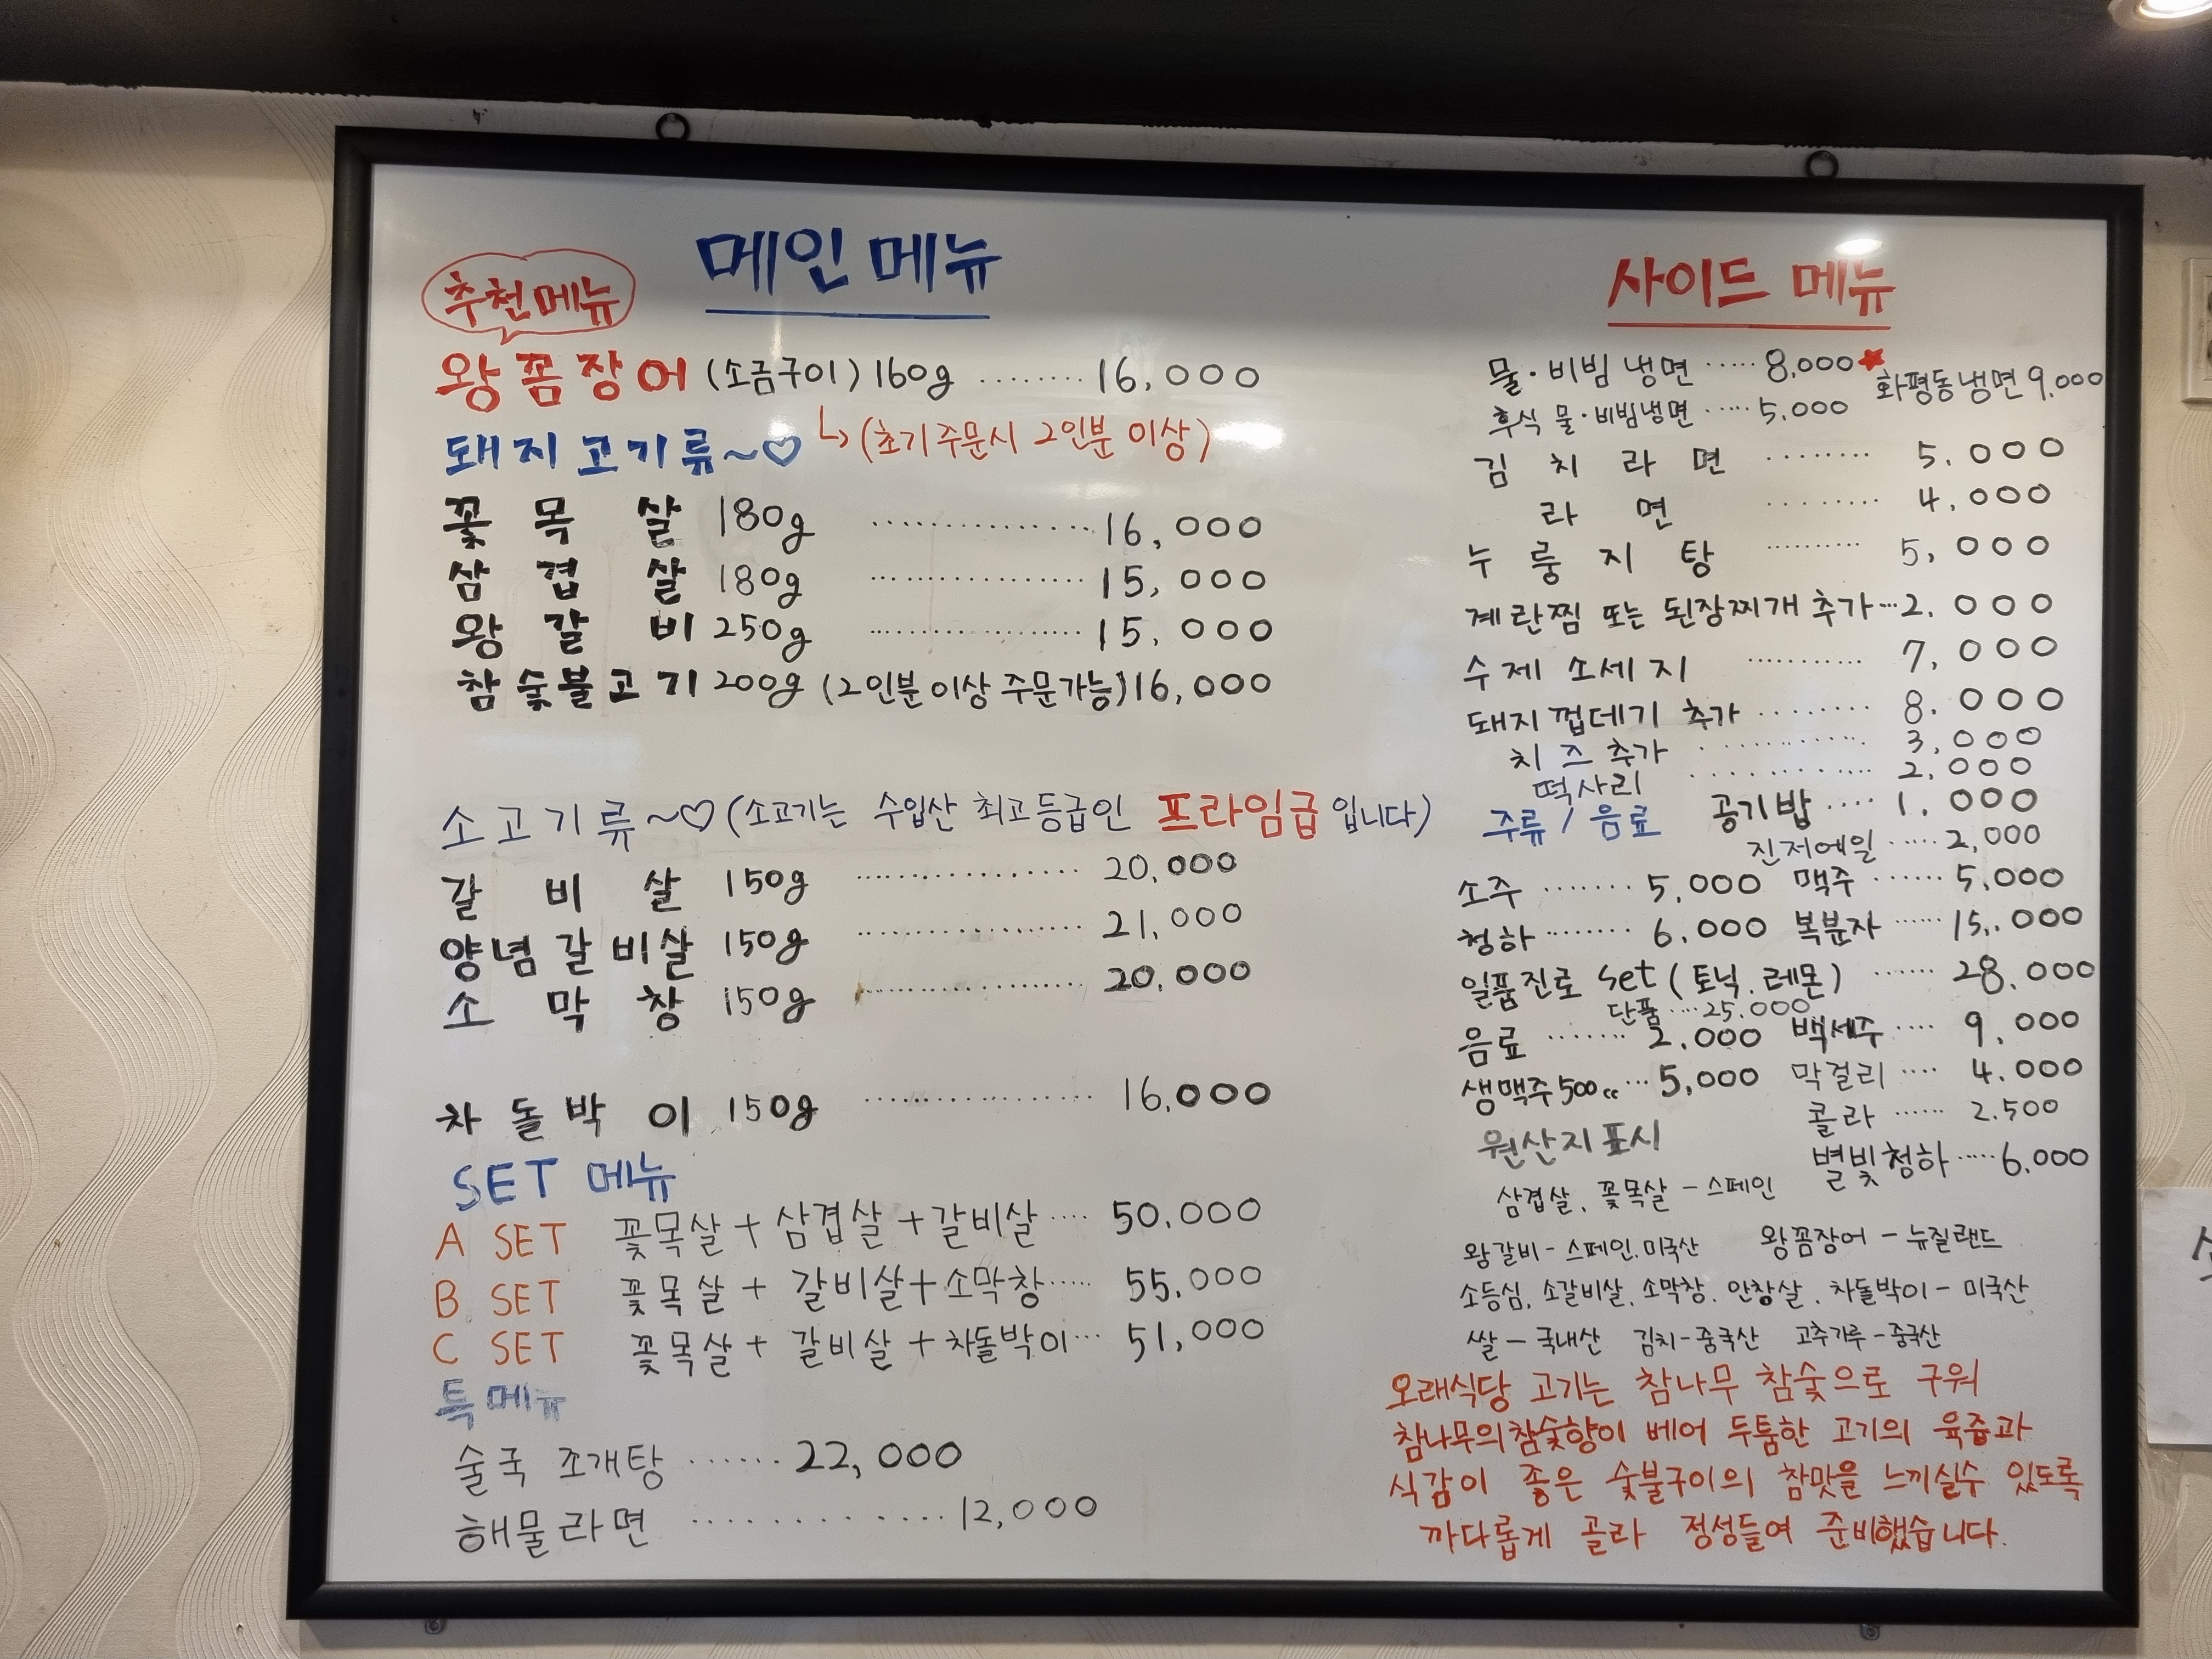 메인 메뉴
추천메뉴
왕꼼장어 (소금구이) 160g ........ 16,000
↳ (초기 주문시 2인분 이상)
돼지고기류~♡
꽃목살 180g ................ 16,000
삼겹살 180g ................ 15,000
왕갈비 250g ................ 15,000
참숯불고기 200g (2인분 이상 주문가능) 16,000
소고기류~♡ (소고기는 수입산 최고등급인 프라임급 입니다)
갈비살 150g ................ 20,000
양념갈비살 150g ................ 21,000
소막창 150g ................ 20,000
차돌박이 150g ................ 16,000
SET 메뉴
A SET 꽃목살 + 삼겹살 + 갈비살 .... 50.000
B SET 꽃목살 + 갈비살 + 소막창 ..... 55,000
C SET 꽃목살 + 갈비살 + 차돌박이 ... 51,000
특메뉴
술국 조개탕 ...... 22,000
해물라면 ............. 12,000
사이드 메뉴
물·비빔 냉면 ..... 8,000 ★ 화평동냉면 9,000
후식 물·비빔냉면 ..... 5,000
김치라면 ........ 5.000
라면 ......... 4,000
누룽지탕 ......... 5,000
계란찜 또는 된장찌개 추가 ... 2.000
수제 소세지 .......... 7,000
돼지껍데기 추가 ........ 8.000
치즈추가 ............ 3,000
떡사리 ............ 2,000
공기밥 .... 1.000
주류 / 음료
진저에일 ..... 2,000
소주 ....... 5,000 맥주 ...... 5,000
청하 ........ 6,000 복분자 ...... 15,000
일품진로 set (토닉.레몬) ...... 28.000
단품 ... 25.000
음료 ....... 2.000 백세주 .... 9,000
생맥주 500cc ... 5,000 막걸리 .... 4.000
콜라 ...... 2.500
원산지 표시
별빛청하 ..... 6,000
삼겹살, 꽃목살 - 스페인
왕갈비 - 스페인.미국산 왕꼼장어 - 뉴질랜드
소등심, 소갈비살, 소막창, 안창살, 차돌박이 - 미국산
쌀 - 국내산 김치 - 중국산 고추가루 - 중국산
오래식당 고기는 참나무 참숯으로 구워
참나무의 참숯향이 베어 두툼한 고기의 육즙과
식감이 좋은 숯불구이의 참맛을 느끼실수 있도록
까다롭게 골라 정성들여 준비했습니다.